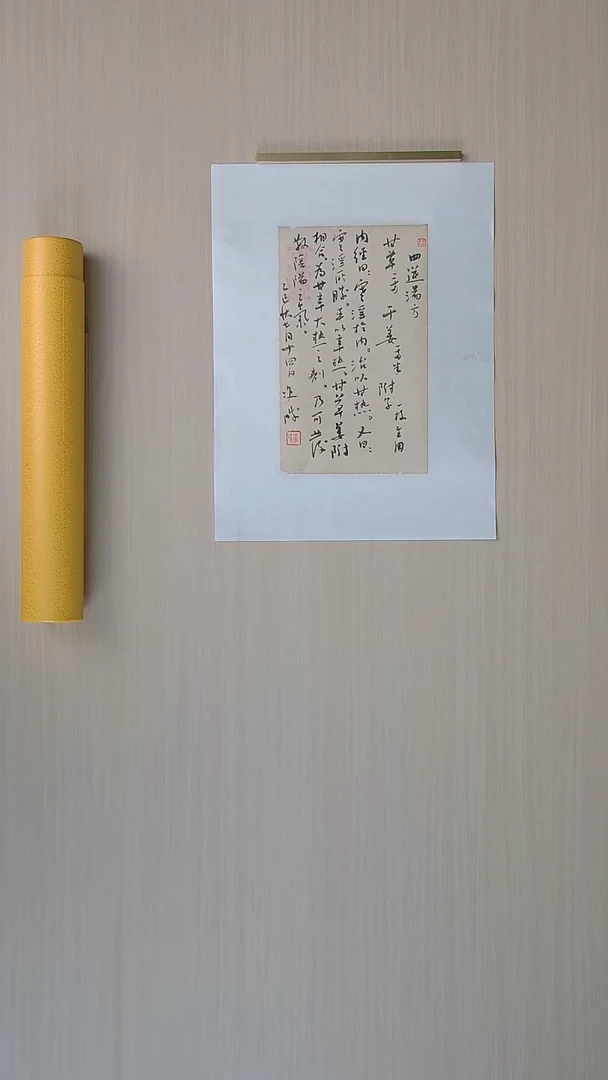 四逆湯方
甘草 干姜 附子 一枚生用
内經曰:寒淫於内。治以甘热。又曰:
寒淫所勝。平以辛热。甘草姜附
相合为甘辛大热之剂。乃可發
散陰陽之氣。
乙巳秋七月十四日